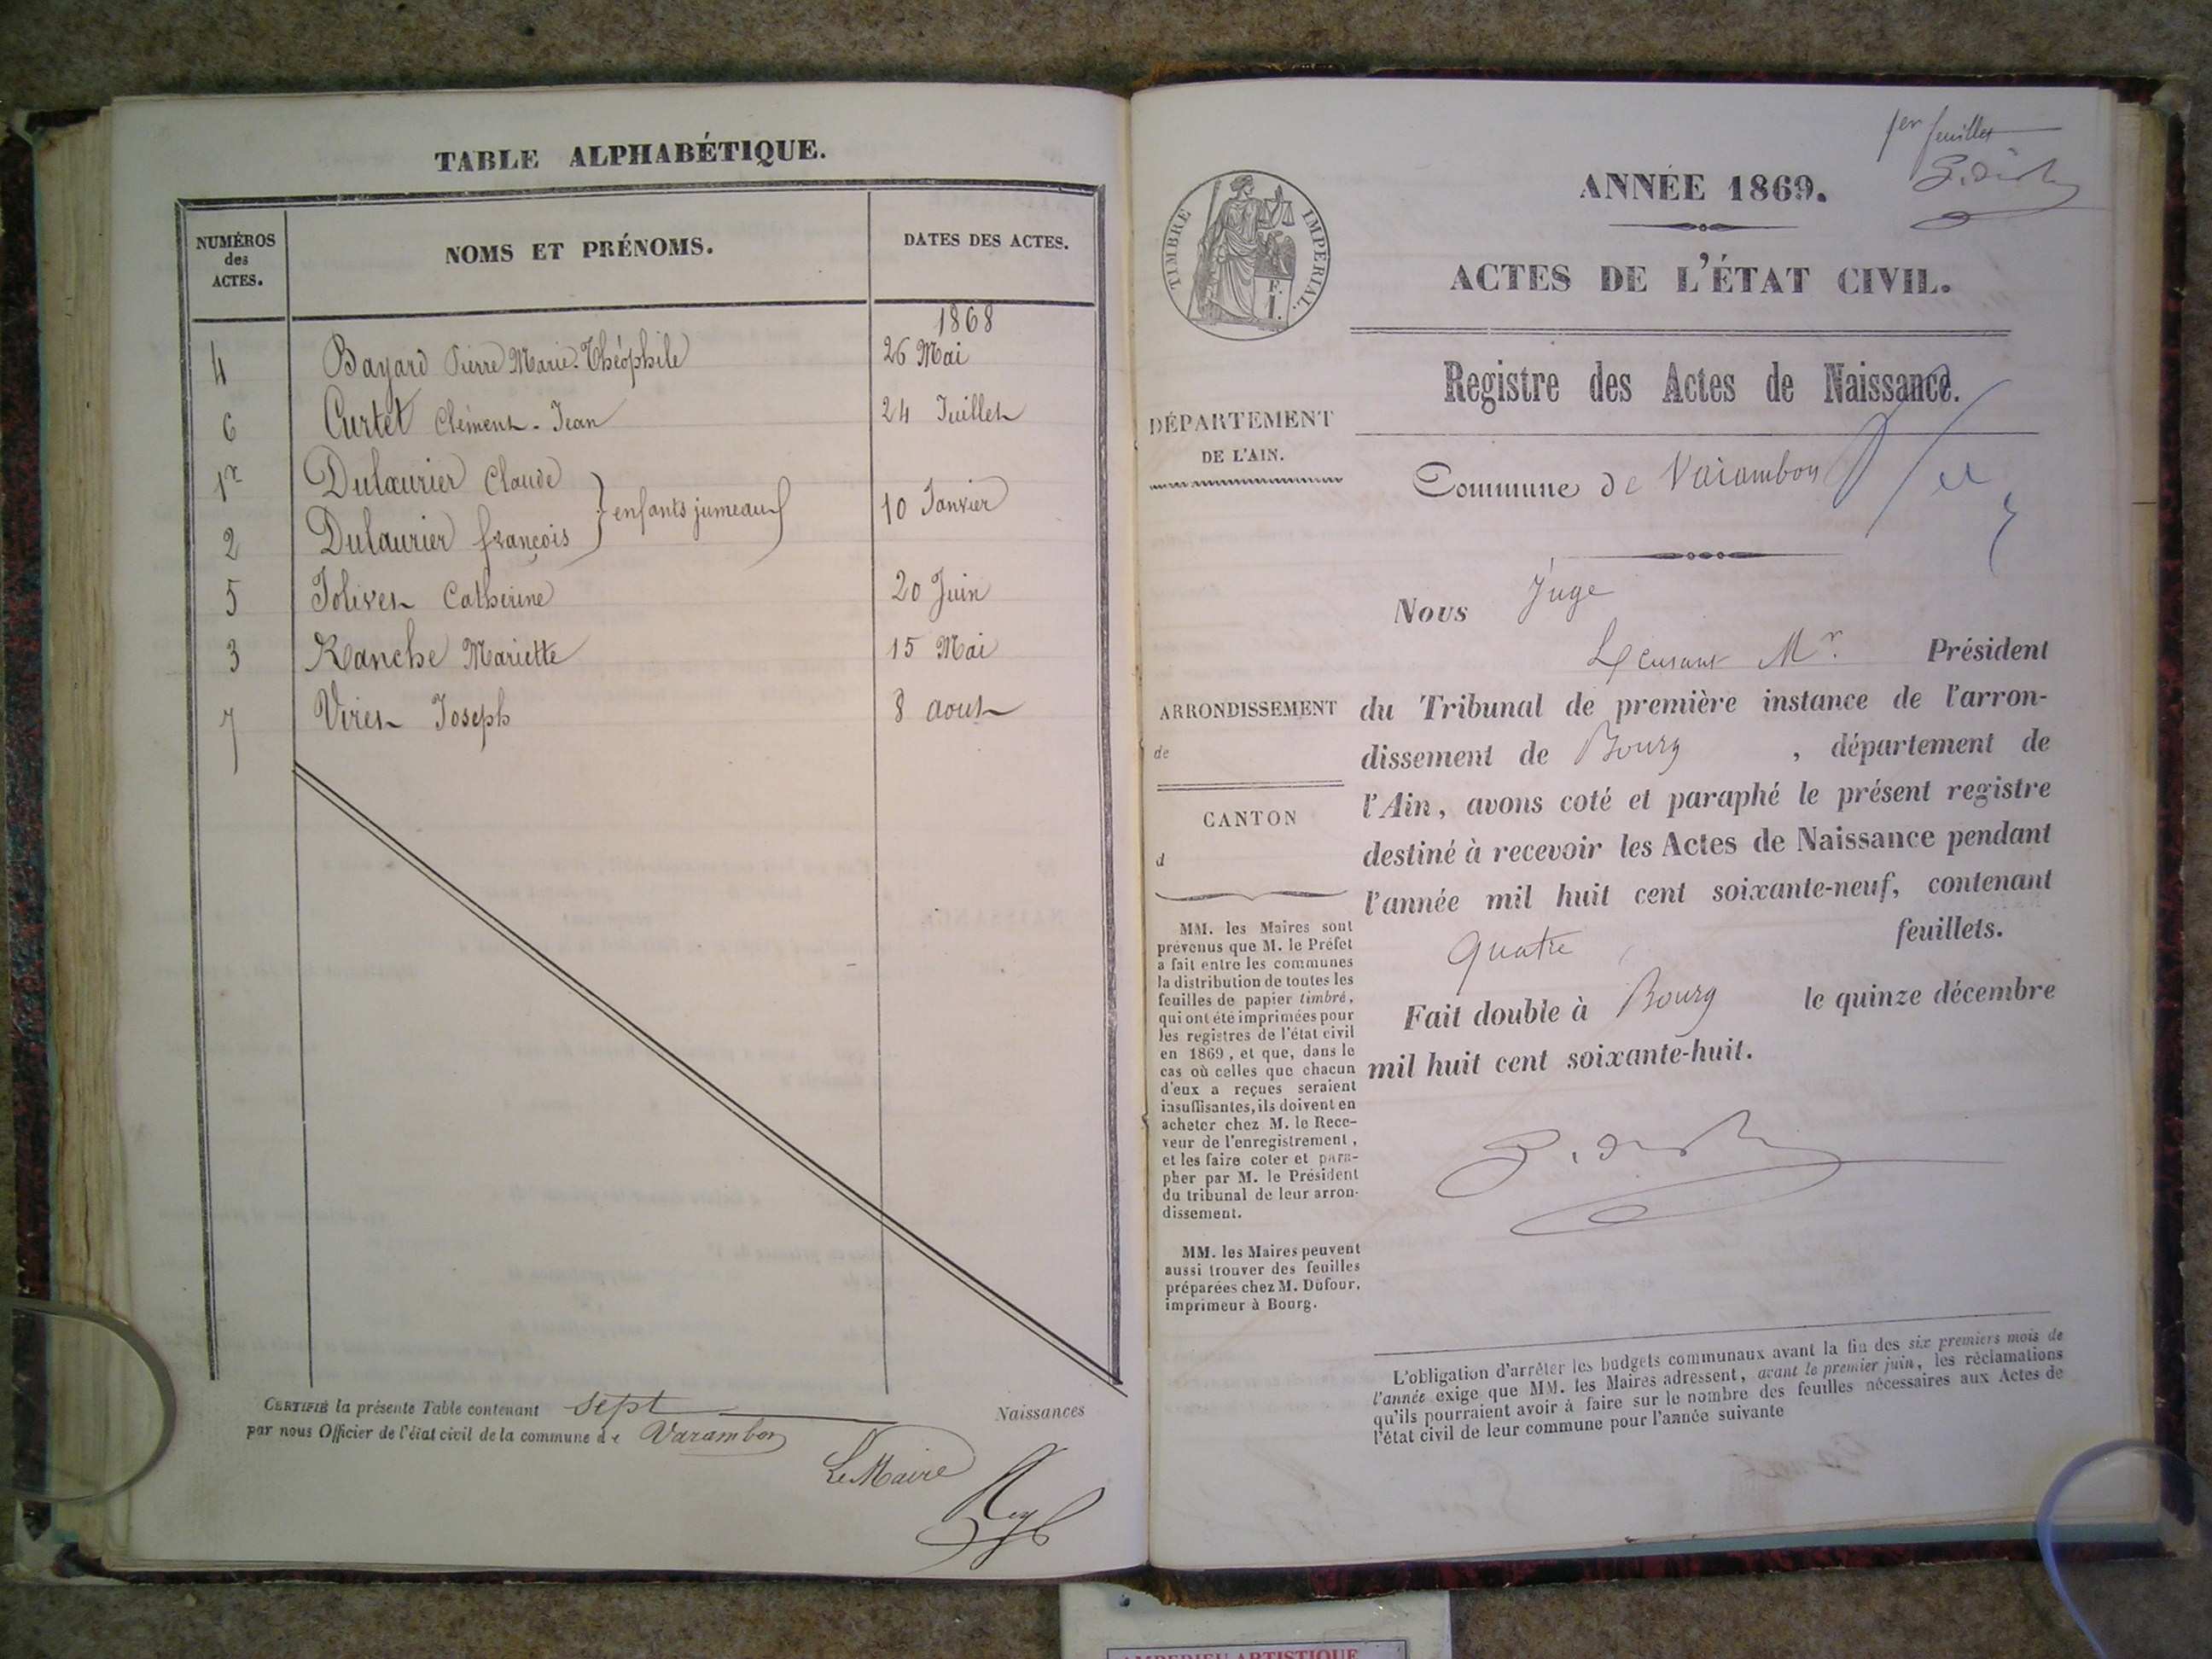 TABLE ALPHABÉTIQUE.
NUMÉROS des ACTES. NOMS ET PRÉNOMS. DATES DES ACTES.
1868
4 Bayard Pierre Marie-Théophile 26 Mai
6 Curtet Clément-Jean 24 Juillet
1er Dulaurier Claude
enfants jumeaux 10 Janvier
2 Dulaurier françois
5 Jolivet Catherine 20 Juin
3 Ranche Mariette 15 Mai
7 Viret Joseph 8 aout
CERTIFIÉ la présente Table contenant sept Naissances
par nous Officier de l'état civil de la commune de Varambon
Le Maire
1er feuillet
TIMBRE IMPÉRIAL.
ANNÉE 1869.
ACTES DE L'ÉTAT CIVIL.
Registre des Actes de Naissance.
DÉPARTEMENT
DE L'AIN.
Commune de Varambon
Nous Juge
Mr. Président
ARRONDISSEMENT
de
CANTON
d
du Tribunal de première instance de l'arron-
dissement de Bourg , département de
l'Ain, avons coté et paraphé le présent registre
destiné à recevoir les Actes de Naissance pendant
l'année mil huit cent soixante-neuf, contenant
quatre feuillets.
Fait double à Bourg le quinze décembre
mil huit cent soixante-huit.
MM. les Maires sont
prévenus que M. le Préfet
a fait entre les communes
la distribution de toutes les
feuilles de papier timbré,
qui ont été imprimées pour
les registres de l'état civil
en 1869, et que, dans le
cas où celles que chacun
d'eux a reçues seraient
insuffisantes, ils doivent en
acheter chez M. le Rece-
veur de l'enregistrement,
et les faire coter et para-
pher par M. le Président
du tribunal de leur arron-
dissement.
MM. les Maires peuvent
aussi trouver des feuilles
préparées chez M. Dufour,
imprimeur à Bourg.
L'obligation d'arrêter les budgets communaux avant la fin des six premiers mois de
l'année exige que MM. les Maires adressent, avant le premier juin, les réclamations
qu'ils pourraient avoir à faire sur le nombre des feuilles nécessaires aux Actes de
l'état civil de leur commune pour l'année suivante